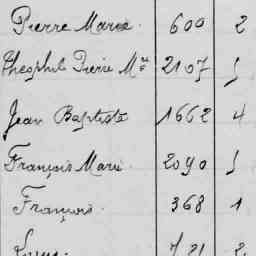 Pierre Marie. 600 2
Théophile Pierre M^ie 2107 5
Jean Baptiste 1662 4
François Marie 2090 5
François. 368 1